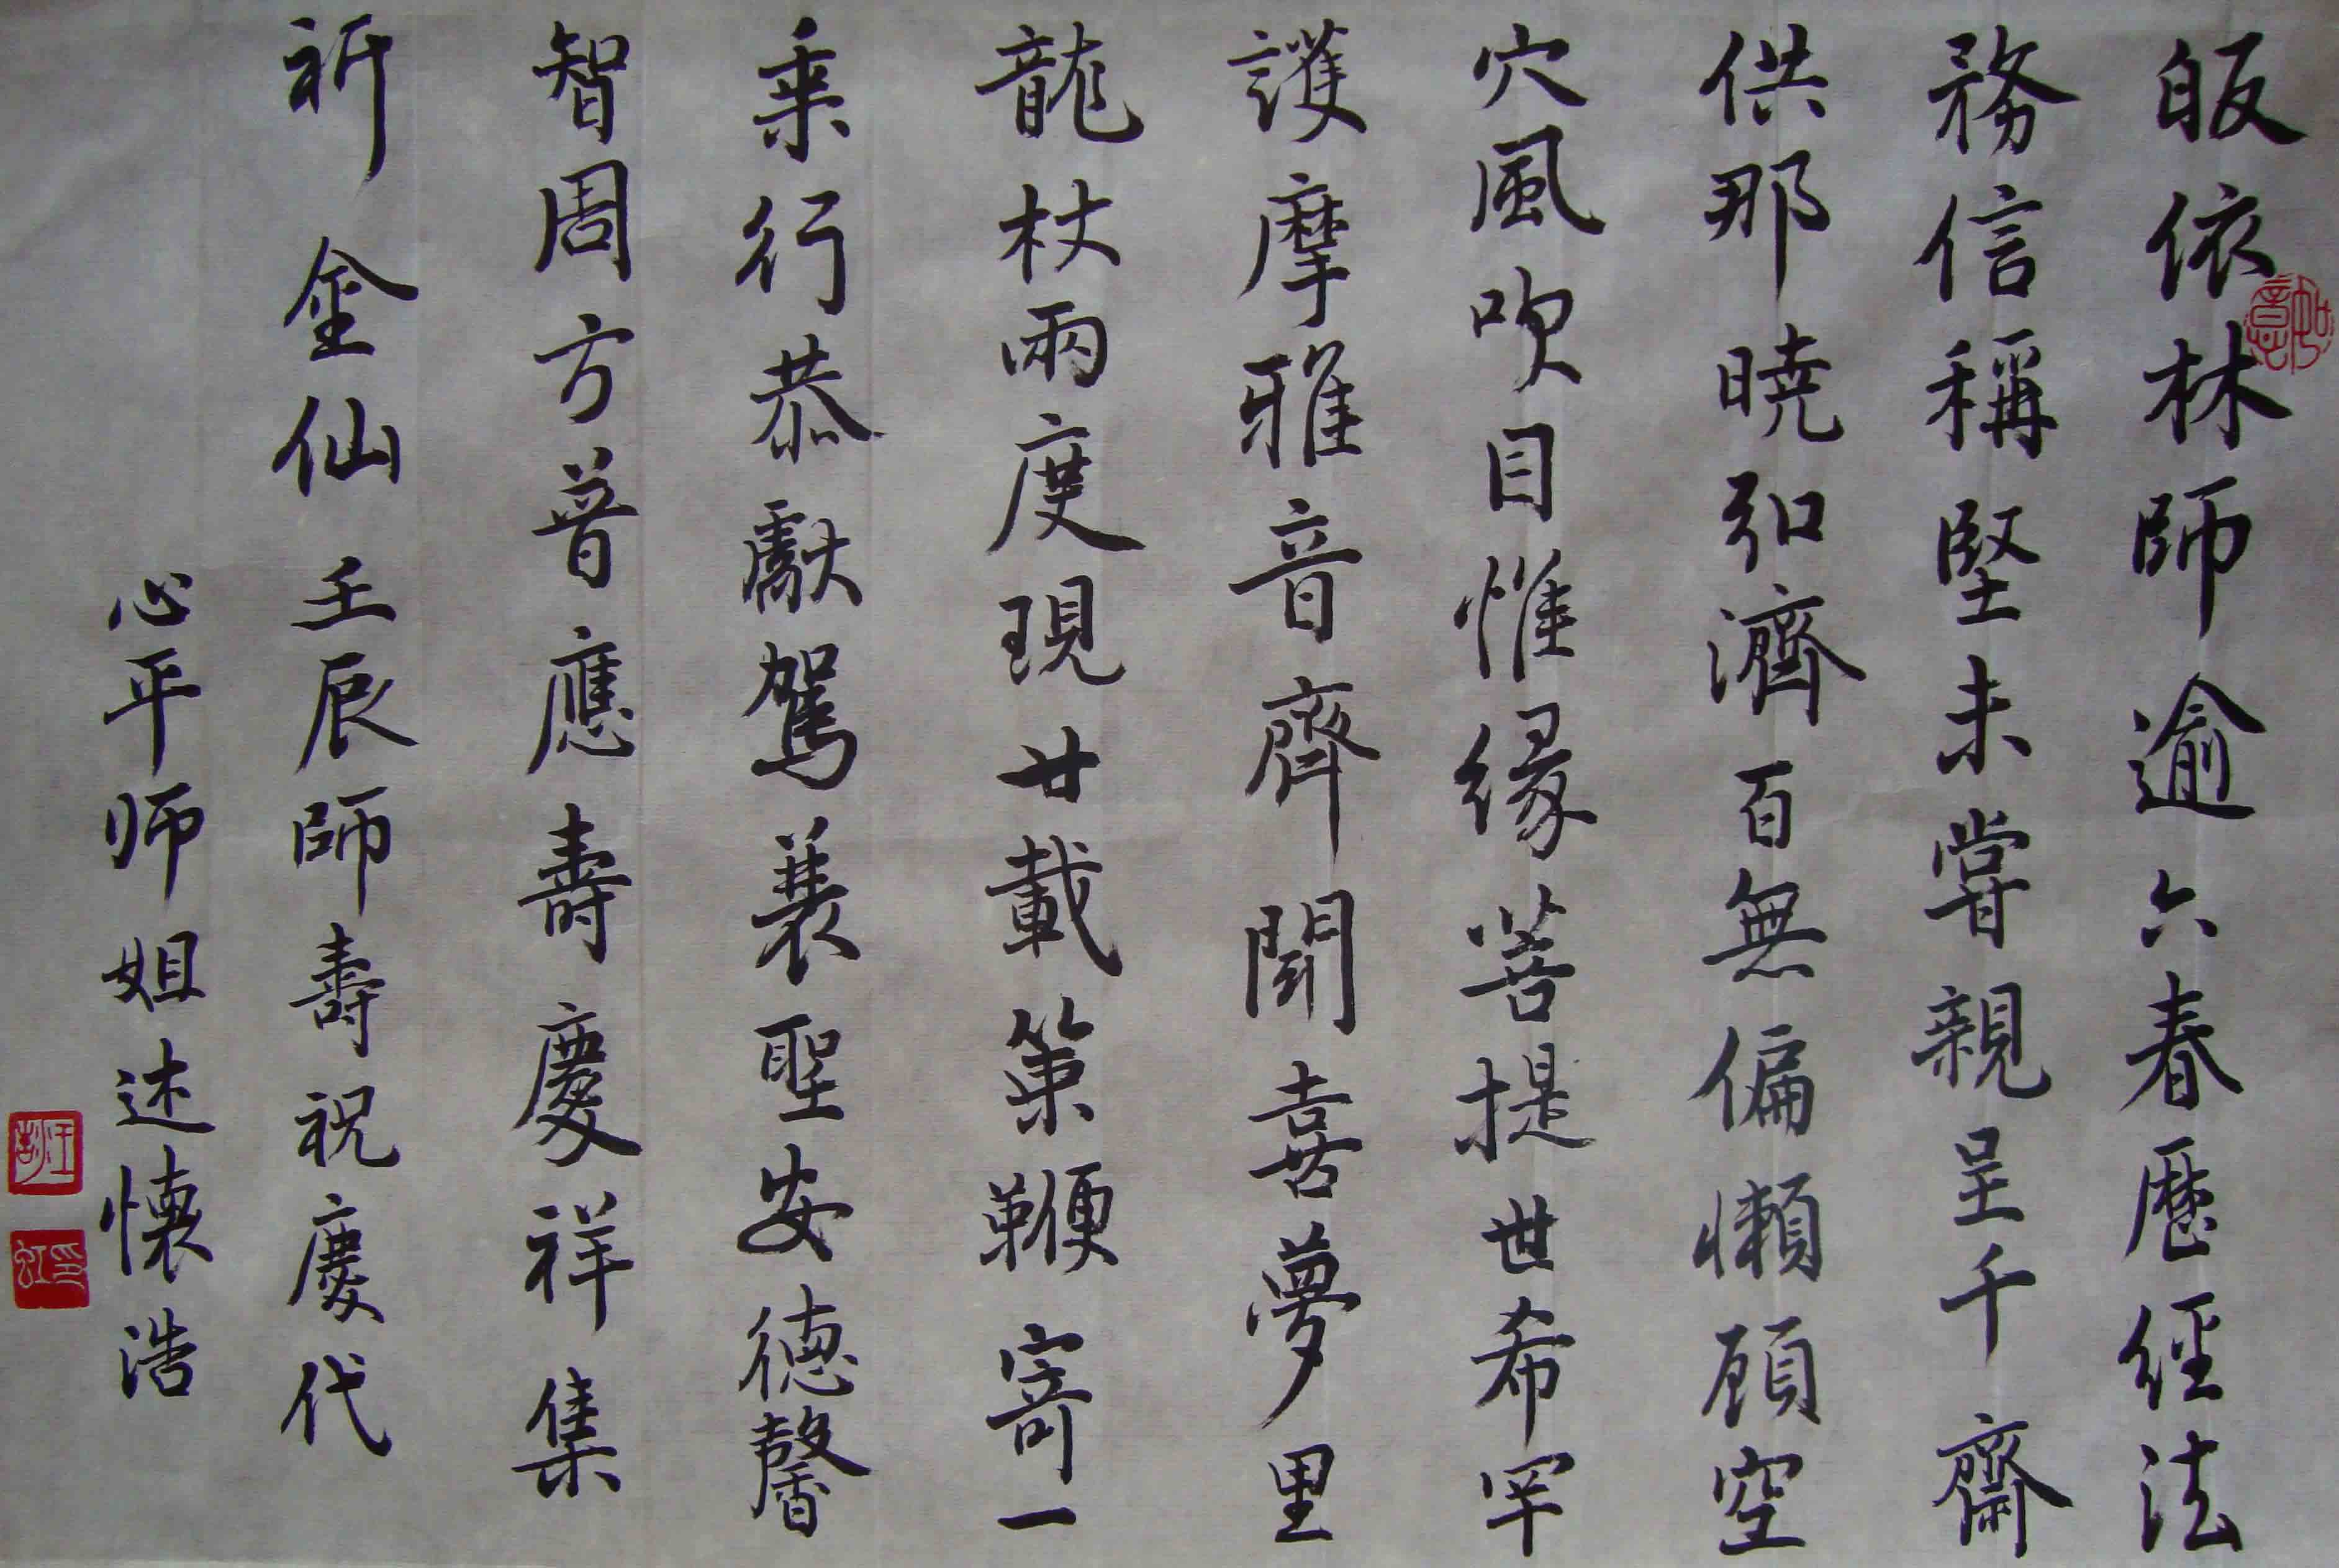 皈依林師逾六春歷經法
務信稱堅未嘗親呈千齋
供那曉弘濟百無偏懶顧空
穴風吹目惟緣菩提世希罕
護摩雅音齊聞喜夢里
龍杖兩度現廿載策鞭寄一
乘行恭獻駕蓑聖安德馨
智周方普應壽慶祥集
祈金仙壬辰師壽祝慶代
心平师姐述懷浩